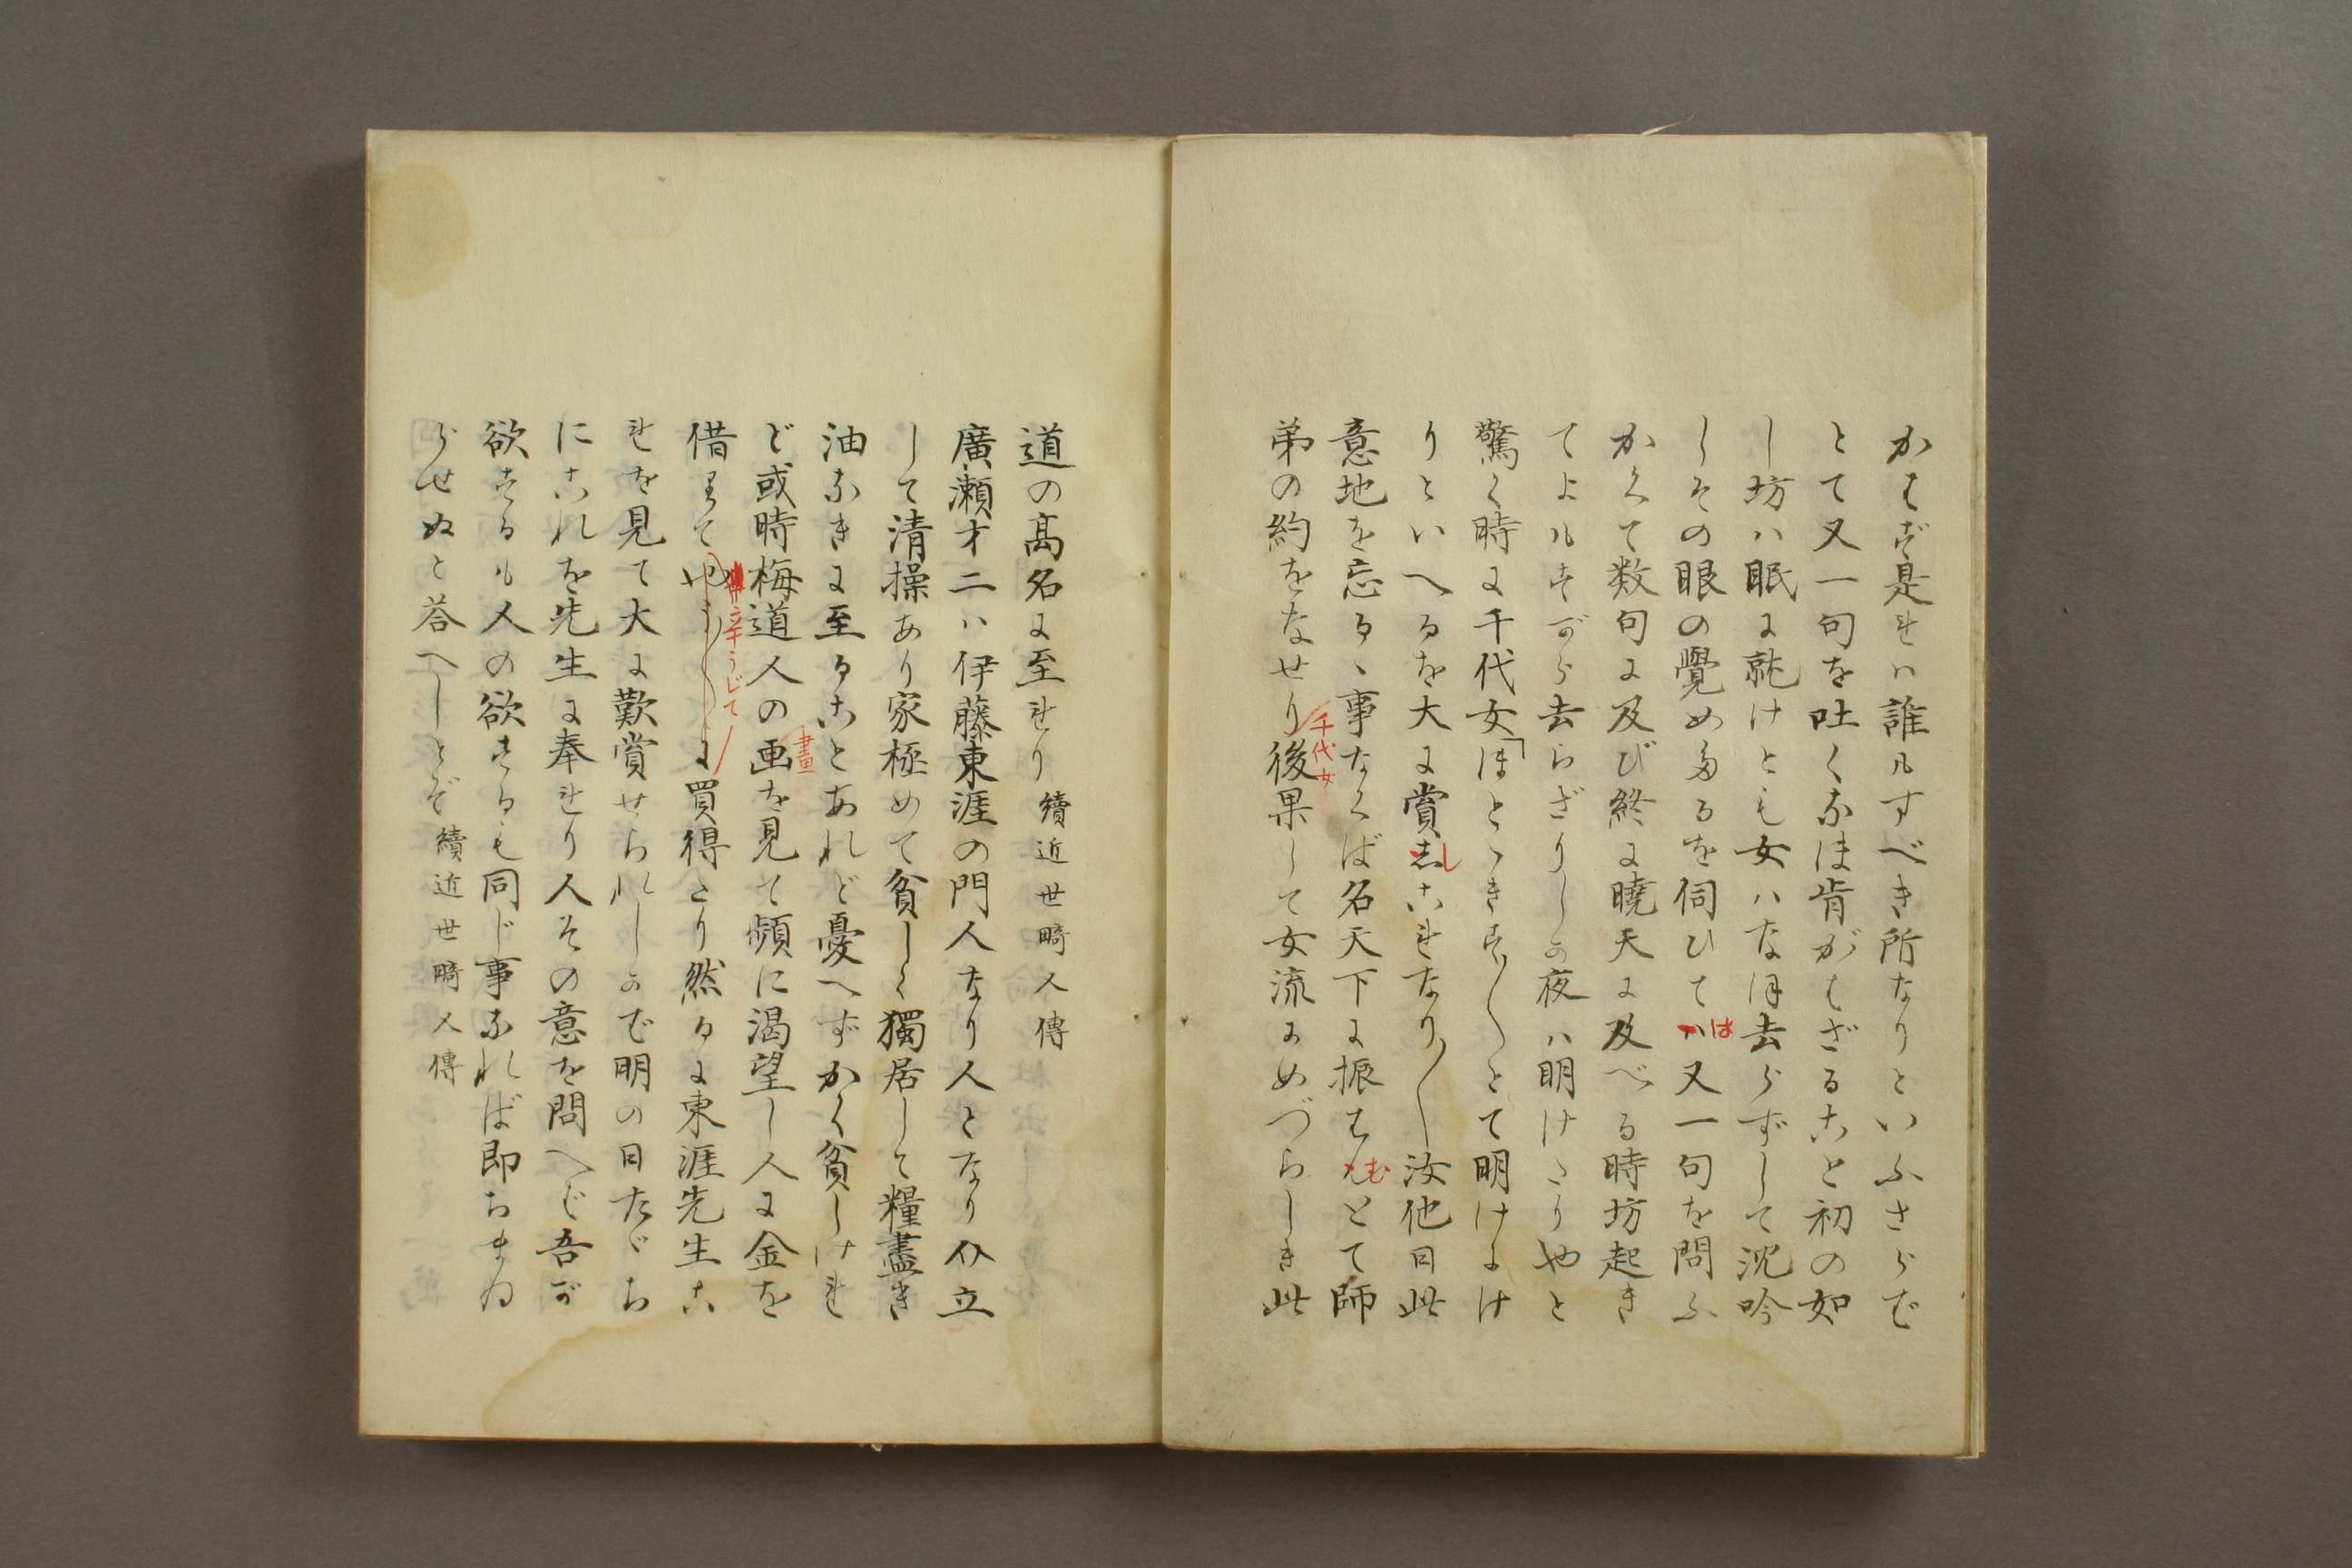 かはず是れハ誰もすべき所なりといふさらで
とて又一句を吐くなほ肯がはざること初の如
し坊ハ眠に就けとも女ハなほ去らずして沈吟
しその眼の覺めたるを伺ひてハは又一句を問ふ
かくて数句に及び終に曉天に及べる時坊起き
てよもすがら去らざりしか夜ハ明けたりやと
驚く時に千代女「ほとゝきす〱とて明けにけ
りといへるを大に賞志しこれなり〱汝他日此
意地を忘るゝ事なくば名天下に振はんむとて師
弟の約をなせり千代女後果して女流にめづらしき此
道の高名に至れり 續近世畸人傳
廣瀬才二ハ伊藤東涯の門人なり人となり介立
して清操あり家極めて貧しく獨居して糧盡き
油なきに至ることあれど憂へずかく貧しけれ
ど或時梅道人の画畫を見て頻に渇望し人に金を
借りてやう〱辛うじてに買得たり然るに東涯先生こ
れを見て大に歎賞せられしかで明の日たゞち
にこれを先生に奉れり人その意を問へば吾が
欲するも人の欲するも同じ事なれば即ちまゐ
らせぬと荅へしとぞ 續近世畸人傳